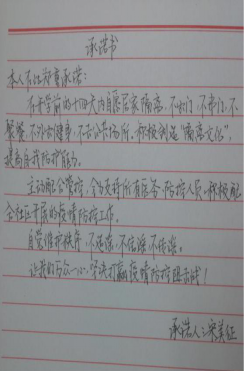 承诺书
本人在此郑重承诺:
在开学前的十四天内自愿居家隔离,不出门、不串门、不
聚餐、不外出健身、不去公共场所,积极创造“隔离文化”,
提高自我防护能力。
主动配合管控,全力支持所有医务、防控人员,积极配
合社区开展的疫情防控工作。
自觉维护秩序,不造谣、不信谣、不传谣。
让我们万众一心,坚决打赢疫情防控阻击战!
承诺人:宋美